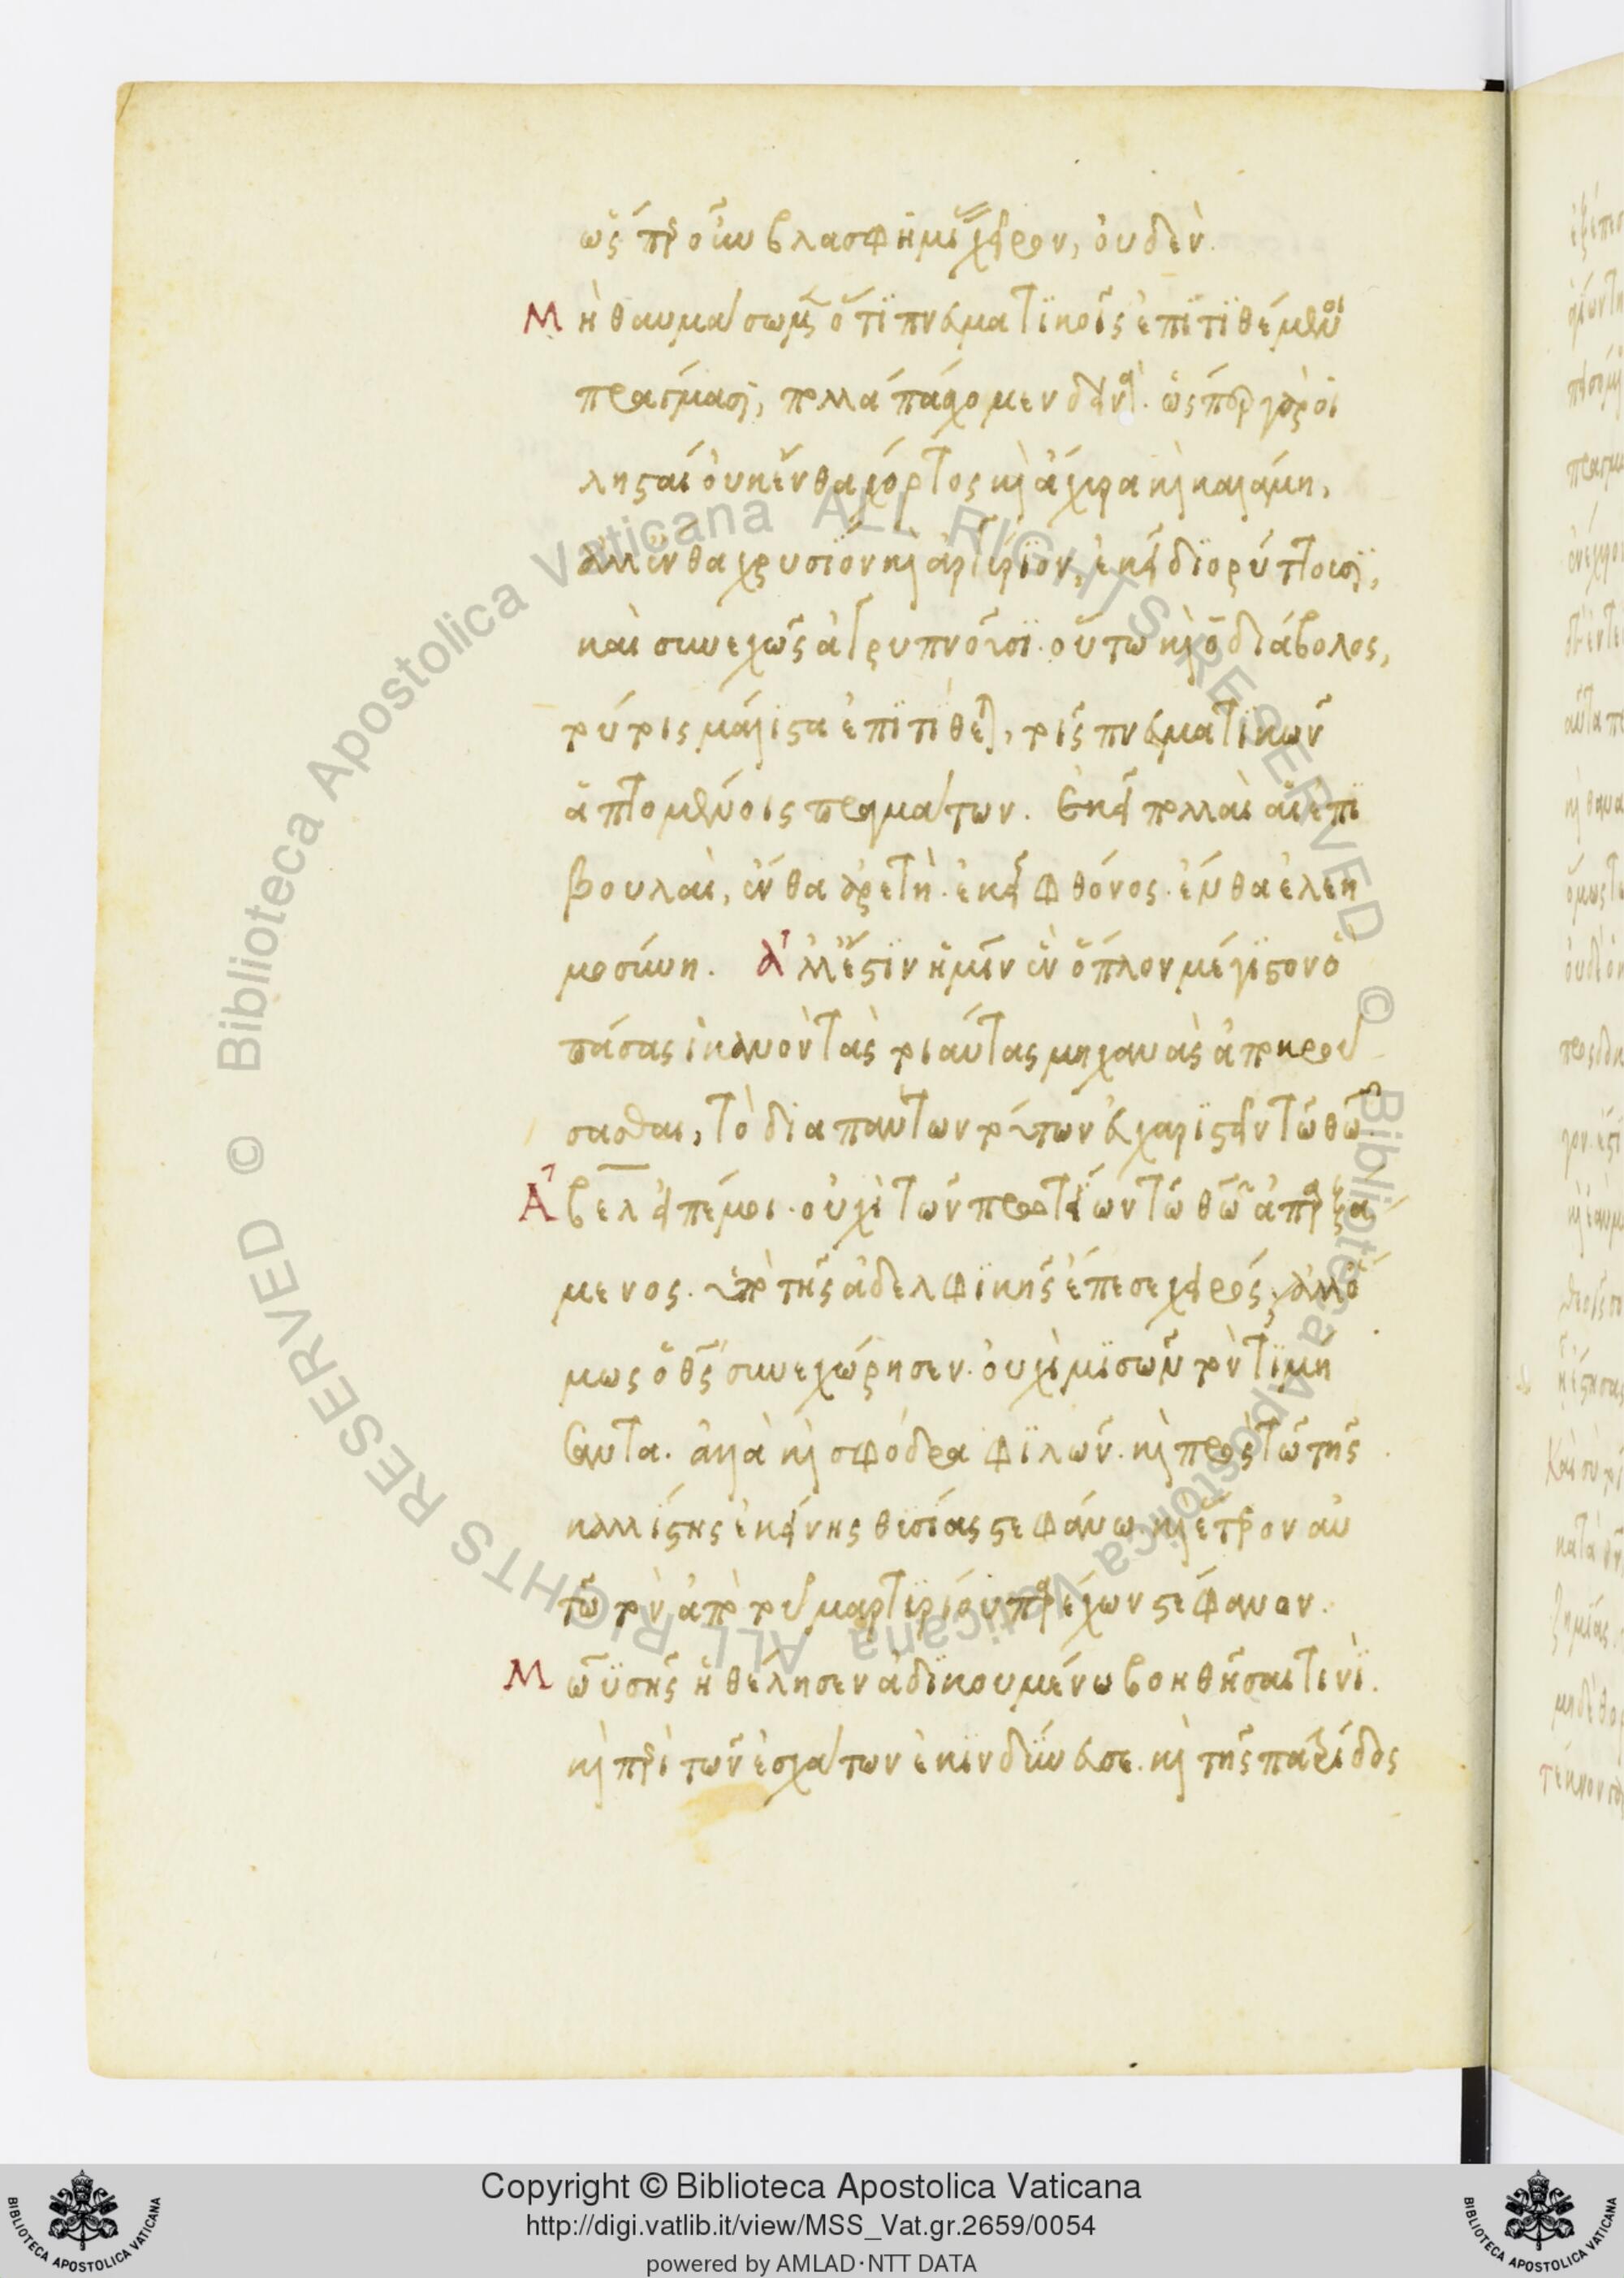 ὡς περ οὖν βλασφημίας χεῖρον, οὐδέν.
Μὴ θαυμάσωμεν ὅτι πνευματικοῖς ἐπιτιθέμενοι
πράγμασι, πολλὰ πάσχομεν δεινά. ὥσπερ γὰρ οἱ
λησταὶ οὐκ ἔνθα χόρτος καὶ ἄχυρα καὶ καλάμη,
ἀλλ' ἔνθα χρυσίον καὶ ἀργύριον, ἐκεῖ διορύττουσι,
καὶ συνεχῶς ἀγρυπνοῦσι. οὕτω καὶ ὁ διάβολος,
τούτοις μάλιστα ἐπιτίθεται, τοῖς πνευματικῶν
ἁπτομένοις πραγμάτων. Ἐκεῖ πολλαὶ αἱ ἐπι
βουλαὶ, ἔνθα ἀρετή. ἐκεῖ φθόνος. ἔνθα ἐλεη
μοσύνη. Ἀλλ' ἔστιν ἡμῖν ἓν ὅπλον μέγιστον ὃ
πάσας ἱκανὸν τὰς τοιαύτας μηχανὰς ἀποκρού
σασθαι, τὸ διὰ πάντων τούτων εὐχαριστεῖν τῷ θεῷ
Ἄβελ εἰπέ μοι. οὐχὶ τῶν πρωτείων τῷ θεῷ ἀπαρξά
μενος. ὑπὸ τῆς ἀδελφικῆς ἔπεσε χειρός; ἀλλ' ὅ
μως ὁ θεὸς συνεχώρησεν. οὐχὶ μισῶν τὸν τιμή
σαντα. ἀλλὰ καὶ σφόδρα φιλῶν. καὶ πρὸς τῷ τῆς
καλλίστης ἐκείνης θυσίας στεφάνω καὶ ἕτερον αὐ
τῷ τὸν ἀπὸ τοῦ μαρτυρίου παρέχων στέφανον.
Μωϋσῆς ἠθέλησεν ἀδικουμένω βοηθῆσαι τινί.
καὶ περὶ τῶν ἐσχάτων ἐκινδύνευσε. καὶ τῆς πατρίδος
Copyright © Biblioteca Apostolica Vaticana
http://digi.vatlib.it/view/MSS_Vat.gr.2659/0054
powered by AMLAD·NTT DATA
BIBLIOTECA APOSTOLICA VATICANA
BIBLIOTECA APOSTOLICA VATICANA
© Biblioteca Apostolica Vaticana ALL RIGHTS RESERVED
© Biblioteca Apostolica Vaticana ALL RIGHTS RESERVED